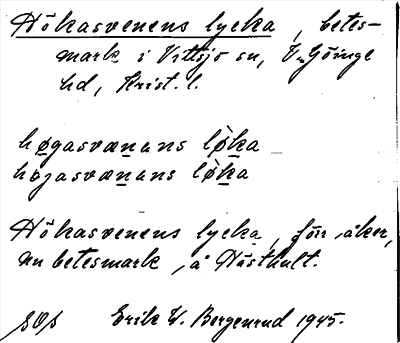 Hökasvenens lycka, betes-
mark i Vittsjö sn, V. Göinge
hd, Krist. l.
høgasvænans lø̀ka
høgasvænans lø̀ka
Hökasvenens lycka, förr åker,
nu betesmark, å Hästhult.
Erik W. Bergenrud 1945.